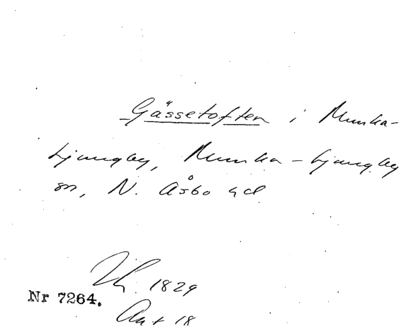 Gässetoften i Munka-
Ljungby, Munka-Ljungby
sn, N. Åsbo hd
1829
Nr 7264.
Akt 18